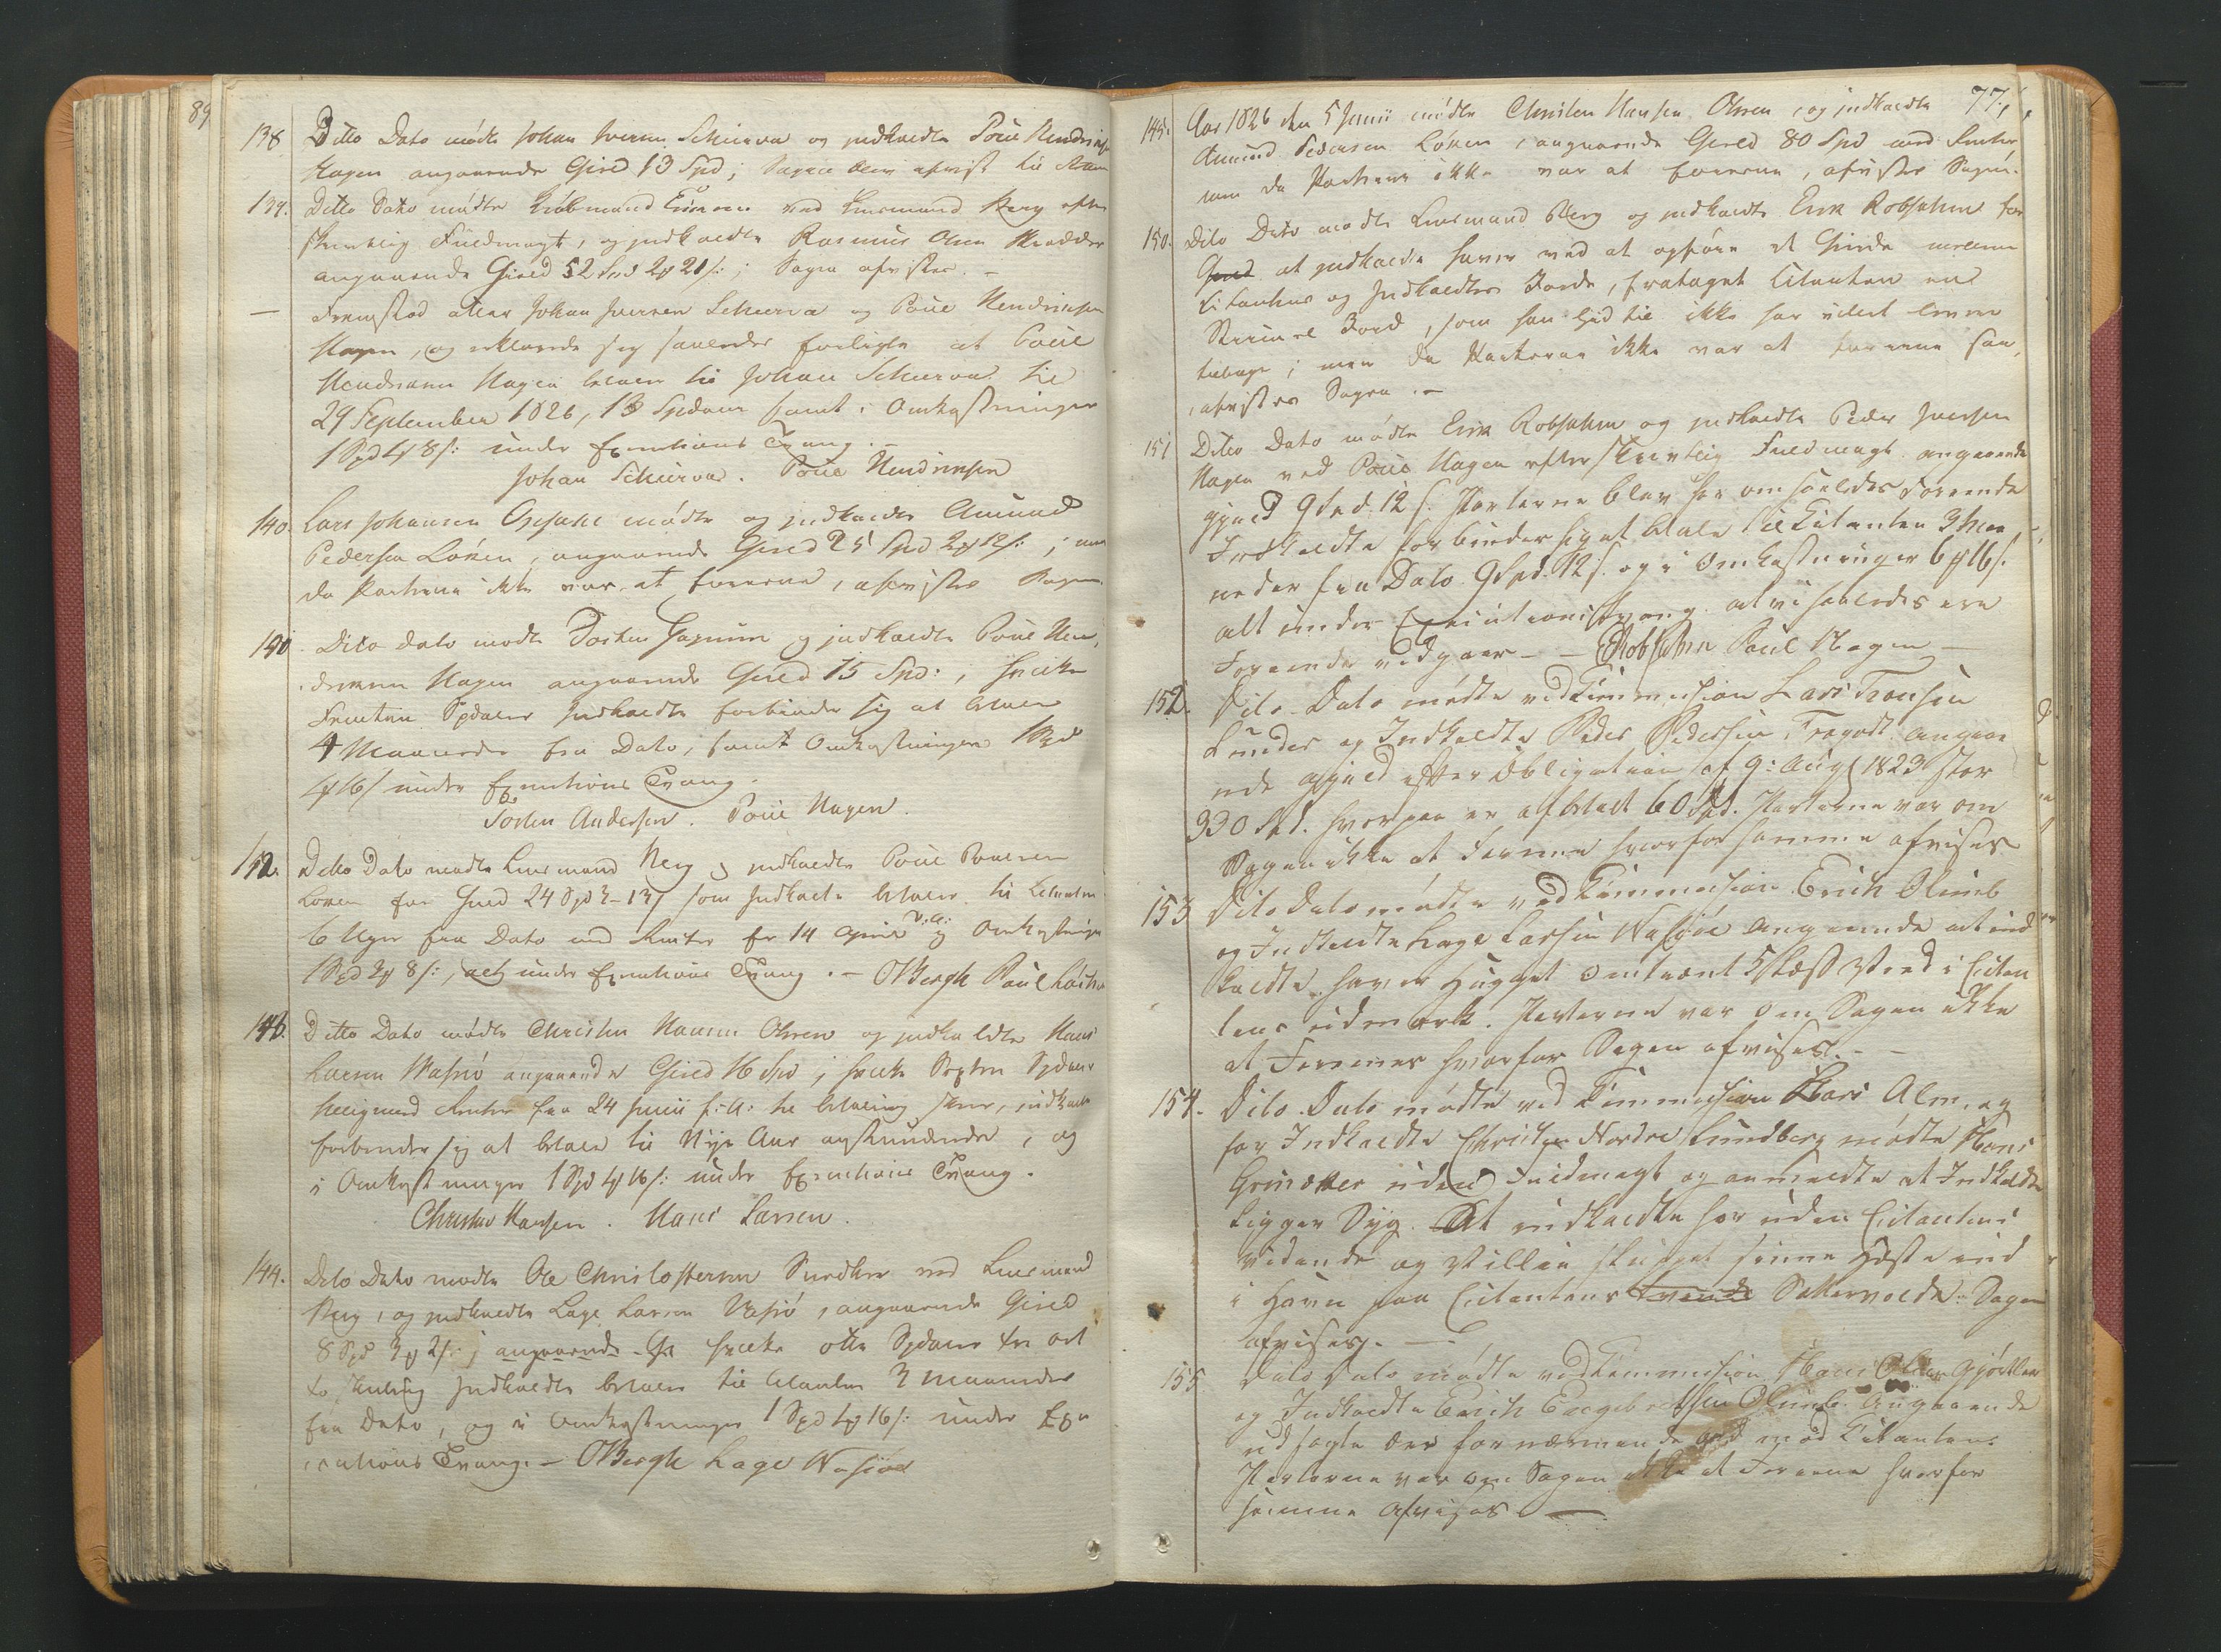 89
138 Ditto Dato mödte Johan Iversen Schierva og indkaldte Poul Hendrichs
Hagen angaaende Gield 13 Spd; Sagen blev afvist til
139. Ditto Dato mödte Kiöbmand ved Lensmand Berg efter
skrivtlig Fuldmagt, og indkaldte Rasmus Olsen
angaaende Gield 52 Spd 2 # 21 s:; Sagen afvistes. –
– Fremstod atter Johan Iversen Schierva og Poul Hendrichsen
Hagen, og erklærede sig saaledes forligte at Poul
Hendrichsen Hagen betaler til Johan Schierva til
29 September 1826, 13 Spdaler samt i Omkostninger
1 Spd 4 # 8 s: under Executions Tvang. –
Johan Schierva. Poul Hendrichsen
140. Lars Johansen Opsahl mödte og indkaldte Amund
Pedersen Löken, angaaende Gield 25 Spd 2 # 12 s:; men
da Parterne ikke var at forene, afvistes Sagen.
141. Dito dato mödte Torsten og indkaldte Poul Hen,
drichsen Hagen angaaende Gield 15 Spd:, hvilke
Femten Spdaler Indkaldte forbinder sig at betale
4 Maaneder fra Dato, samt Omkostninger 1 Spd
4 # 16 s under Executions Tvang.
Torsten Andersen. Poul Hagen.
142. Ditto Dato mödte Lensmand Berg og indkaldte Poul Poulsen
Löken for Gield 24 Spd 3-13 s som Indkaldte betaler til Citanten
6 Uger fra Dato med Renter fra 14 April d. A: og Omkostninger
1 Spd 2 # 8 s:, alt under Executions Tvang. – OBergh Poul
143. Ditto Dato mödte Christen Hansen Olsren og indkaldte Hans
Larsen Wasiö angaaende Gield 16 Spd; hvilke Sexten Spdaler
tilligemed Renter fra 24 Junii f: A: til betaling skeer, indkaldte
forbinder sig at betale til Nyt Aar anstundende, og
i Omkostninger 1 Spd 4 # 16 s: under Executions Tvang.
Christen Hansen. Hans Larsen.
144. Dito Dato mödte Ole Christophersen ved Lensmand
Berg, og indkaldte Lage Larsen Vasiö, angaaende Gield
8 Spd 3 # 2 s:; angaaende hvilke otte Spdaler tre ort
to skilling Indkaldte betaler til Citanten 3 Maaneder
fra Dato, og i Omkostninger 1 Spd 4 # 16 s: under Exe
cutions Tvang. – OBergh Lage Wasiöe
77.
145. Aar 1826 den 5 Junii mödte Christen Hansen Olsren, og indkaldte
Amund Pedersen Löken, angaaende Gield 80 Spd med Renter,
men da Parterne ikke var at forene, afvistes Sagen.
150. Dito Dato mödte Lensmand Berg og indkaldte Erik Robsahm for
at indkaldte haver ved at opföre et Gierde mellem
Citantens og Indkaldtes Jorde, frataget Citanten en
Strimel Jord, som han hidtil ikke har villet levere
tilbage; men da Parterne ikke var at forene saa,
afvistes Sagen. –
151 Dito Dato mödte Erik Robsahm og indkaldte Peder Iversen
Hagen ved Poul Hagen efter Skrivtlig Fuldmagt angaaende
gjæld 9 Spd. 12 s. Parterne blev her om saaledes Forenede
Indkaldte forbinder sig at betale til Citanten 3 Maa,
neder fra Dato 9 Spd. 12 s. og i Omkostninger 6 # 16 s.
alt under Executionstvang. at vi saaledes ere
Forenede vedgaaes – – ERobsahm Poul Hagen –
152. Dito Dato mödte ved Kommission Lars Tronsen
Lunder og Indkaldte Peder Pedersen Fragodt angaae
nde gjeld efter Obligation af 9: Aug 1823 stor
330 Spd. hvorpaa er afbetalt 60 Spd. Parterne var om
Sagen ikke at Forene hvorfor samme afvises
153 Dito Dato mödte ved Kommission Erich Olimb
og Indkaldte Lage Larsen Wasjöe angaaende at ind
kaldte haver Hugget omtrent 5 Læs Ved i Citan
tens udmark. Parterne var om Sagen ikke
at Forenes hvorfor Sagen afvises. – –
154. Dito Dato mödte ved Kommission Lars Alm, og
for Indkaldte Christen Nordre Lundberg mödte Hans
Grinaker uden Fuldmagt og anmeldte at Indkaldte
Ligger Syg. At indkaldte har uden Citantens
Vidende og Villie sluppet sinne Heste ind
i Havn paa Citantens Sætervolde. Sagen
afvises. –
155 Dito Dato mödte ved Kommission Hans Olsen Gjöviken
og Indkaldte Erich Engebretsen Olimb Angaaende
udsagte Ord mod Citanten.
Parterne var om Sagen ikke at Forene hvorfor
samme afvises –